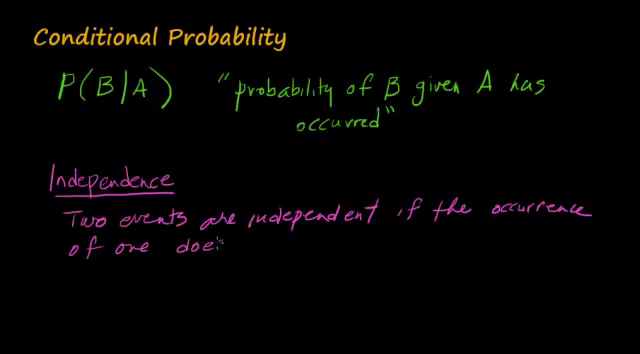 Conditional Probability
P(B/A) "probability of B given A has
occurred"
Independence
Two events are independent if the occurrence
of one doe